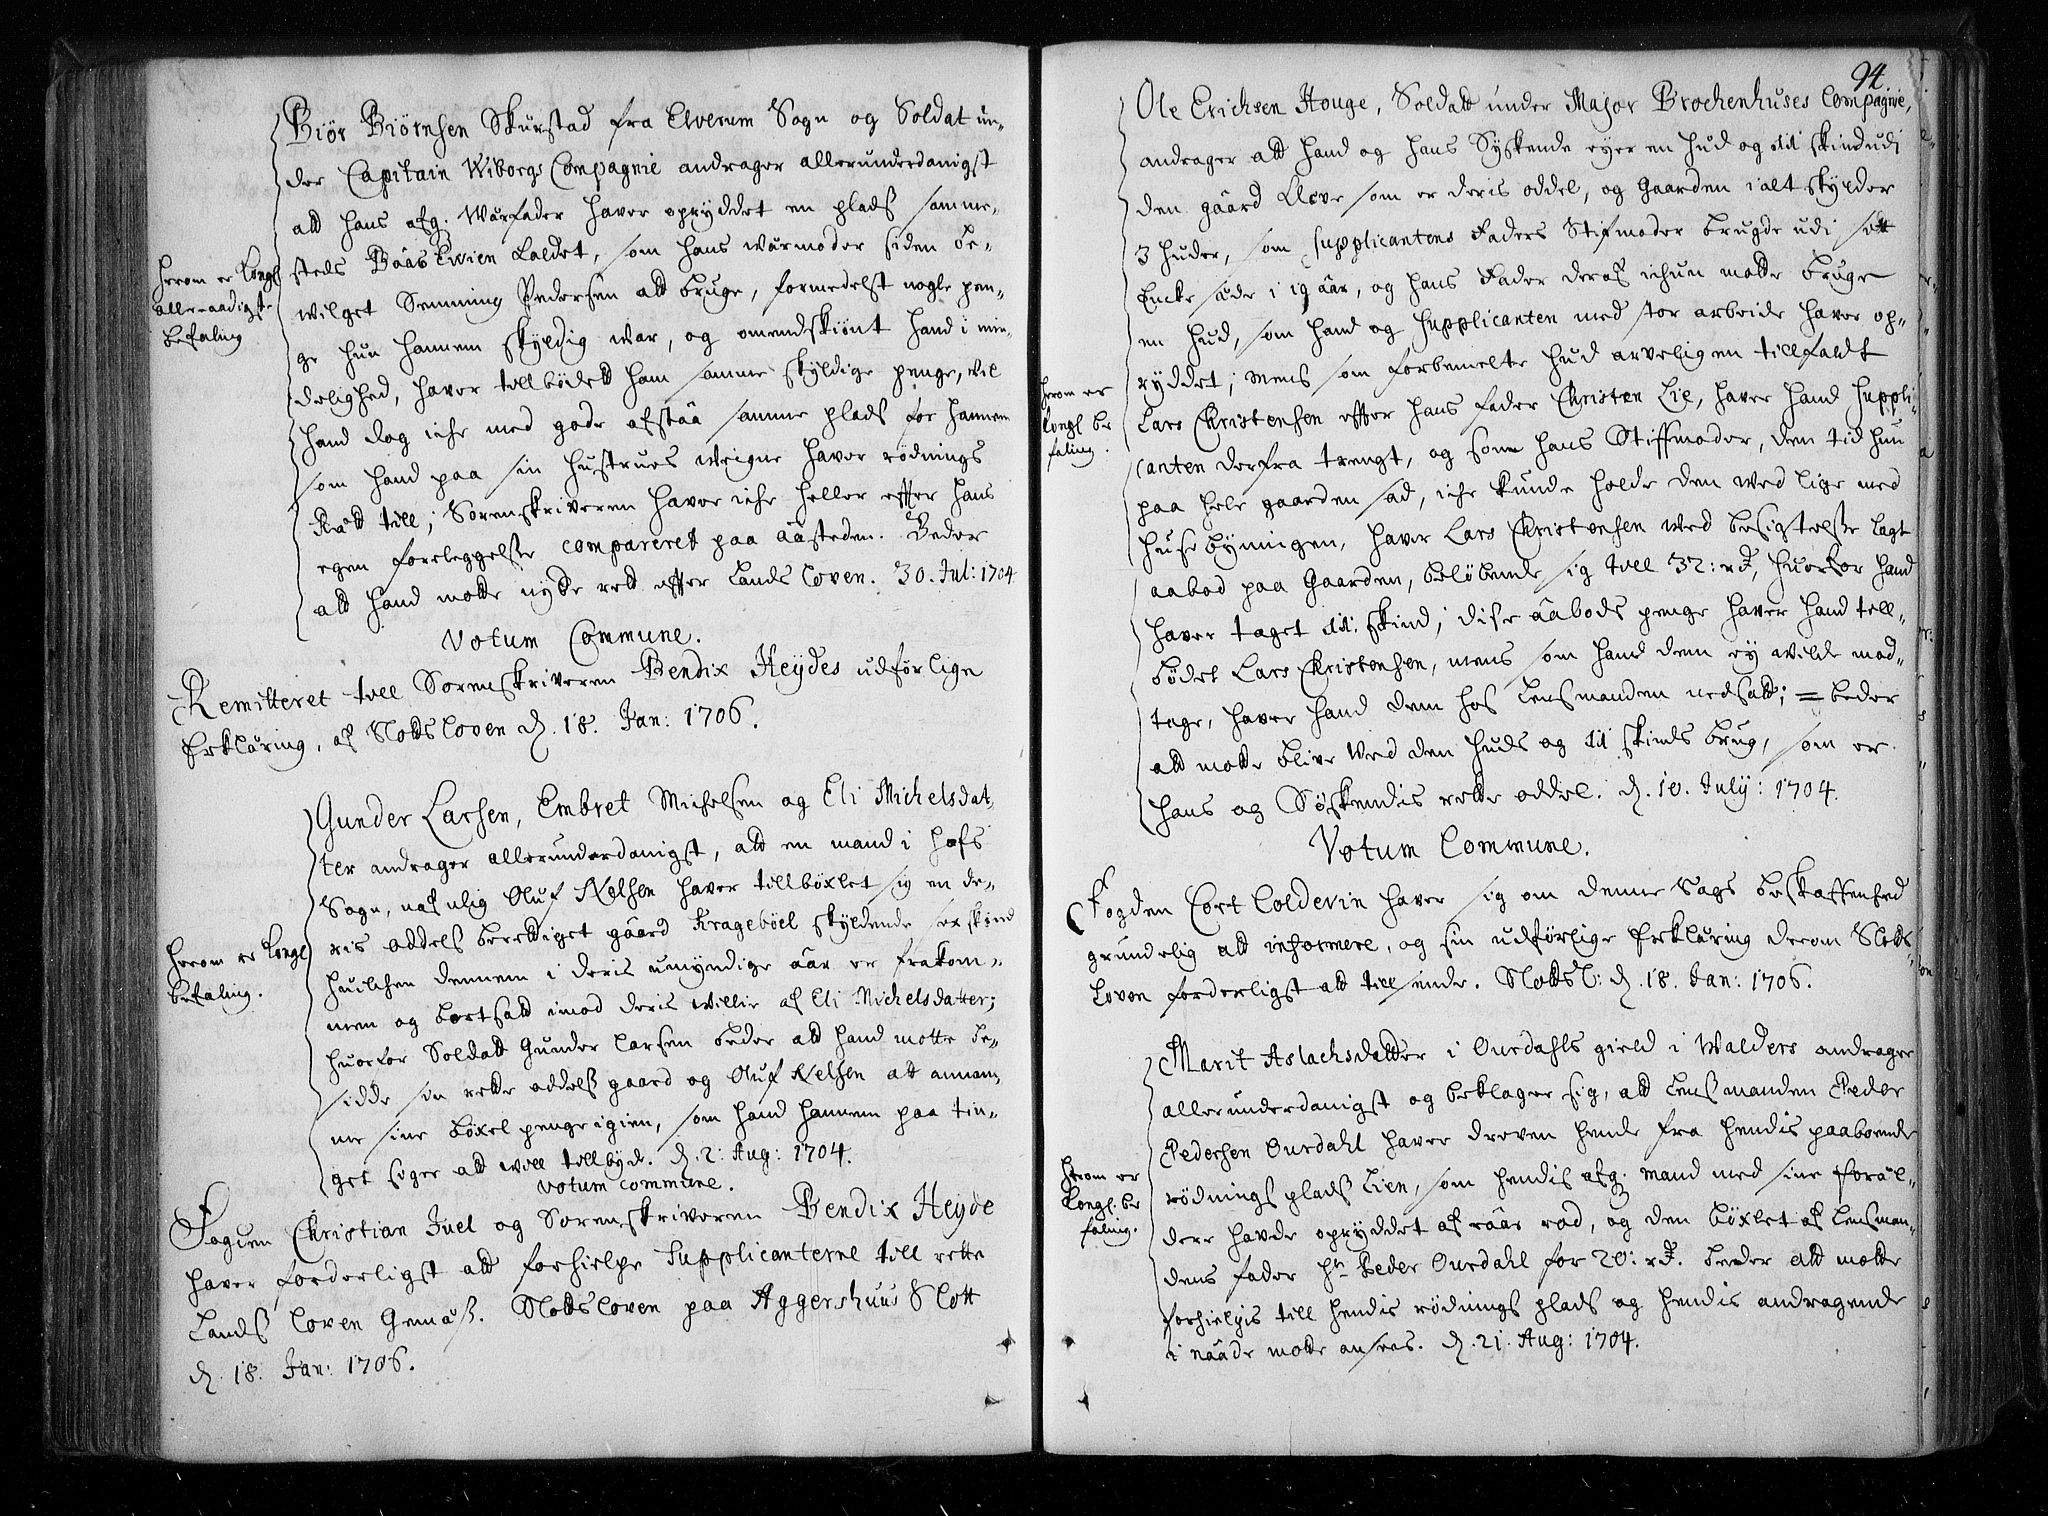 Biör Biörnsen Skurstad fra Elverum Sogn og Soldat un-
der Capitain Wiborgs Compagnie andrager allerunderdanigst
att hans afg. Wärfader haver opryddet en plads samme-
steds Baas Evien kaldet, som hans wärmoder siden be-
wilget Semming Pedersen att bruge, formedelst nogle pen-
ge hun hannem skyldig war, og omendskiönt hand i min-
delighed, haver tillbödet ham samme skyldige penge, vil
hand dog iche med gode afstaa samme plads for hannem
som hand paa sin hustrues weigne haver rödnings
Rätt till; Sorenskriveren haver iche heller effter hans
egen foreleggelse compareret paa aasteden. Beder
att hand motte nyde rett effter Lands Loven. 30. Jul: 1704
Herom er Kongl
allernaadigste
befaling
Votum Commune.
Remitteret till Sorenskriveren Bendix Heydes udförlige
Erkläring, af Slottsloven d. 18. Jan: 1706.
Gunder Larsen, Embret Michelsen og Eli Michelsdat
ter andrager allerunderdanigst, att en mand i Hofs
Sogn, nafnlig Oluf Nelsen haver tillböxlet sig en de-
ris oddels berettiget gaard Krageböel skyldende sex skind
huilchen dennem i deris umyndige aar er frakom-
men og bortsatt imod deris willie af Eli Michelsdatter;
huorfor Soldatt Gunder Larsen beder att hand motte be-
sidde sin rette oddelss gaard og Oluf Nelsen att annam
me sine böxel penge igien, som hand hannem paa tin-
get siger att will tillbyde. d. 2: Aug: 1704.
Herom er Kongl
befaling.
Votum commune.
Fogden Christian Juel og Sorenskriveren Bendix Heyde
haver forderligst att forhielpe Supplicanterne till rette
Landss Loven Gemäss. Slottsloven paa Aggershuus Slott
d. 18. Jan: 1706.
94.
Ole Erichsen Houge, Soldatt under Major Brochenhuses Compagnie,
andrager att hand og hans Syskende eyer en hud og iii skind udi
den gaard som er deris oddel, og Gaarden i alt skylder
3 huder, som supplicantens Faders Stifmoder brugde udi sitt
Encke säde i 19 aar, og hans Fader deraf ichun motte bruge
en hud, som hand og Supplicanten med stor arbeide haver op-
ryddet; mens som forbemelte hud arveligen tillfaldt
Lars Christensen effter hans fader Christen Lie, haver hand Suppli-
canten derfra trengt, og som hans Stiffmoder, den tid hun
paa hele gaarden sad, iche kunde holde den wed lige med
huse bynningen, haver Lars Christensen wed besigtelse lagt
aabod paa Gaarden, belöbende sig till 32: rd, huorfor hand
haver taget iii: skind; disse aabods penge haver hand till-
bödet Lars Christensen, mens som hand dem ey wilde mod-
tage, haver hand dem hos Lensmanden nedsatt; = beder
att motte blive wed den huds og iii skinds brug, som er
hans og Söskendis rette oddel. d. 10. July: 1704.
Herom er
Kongl be
faling.
Votum Commune.
Fogden Cort Coldevin haver sig om denne Sags beskaffenhed
grundelig att informere, og sin udförlige Erkläring derom Slotts-
Loven forderligst att till sende. Slottsl: d. 18. Jan: 1706.
Marit Aslachsdatter i Ourdahls gield i Walders andrager
allerunderdanigst og beklager sig, att Lensmanden Peder
Pedersen Ourdahl haver dreven hende fra hendis paaboende
rödnings plads Lien, som hendis afg. mand med sine foräl-
dere havde opryddet af raae rod, og den böxlet af Lensman-
dens fader Hr Peder Ourdahl for 20: rd. beder att motte
forhielpis till hendis rödnings plads og hendis andragende
i naade motte ansees. d. 21. Aug: 1704.
Herom er
Kongl. be
faling.